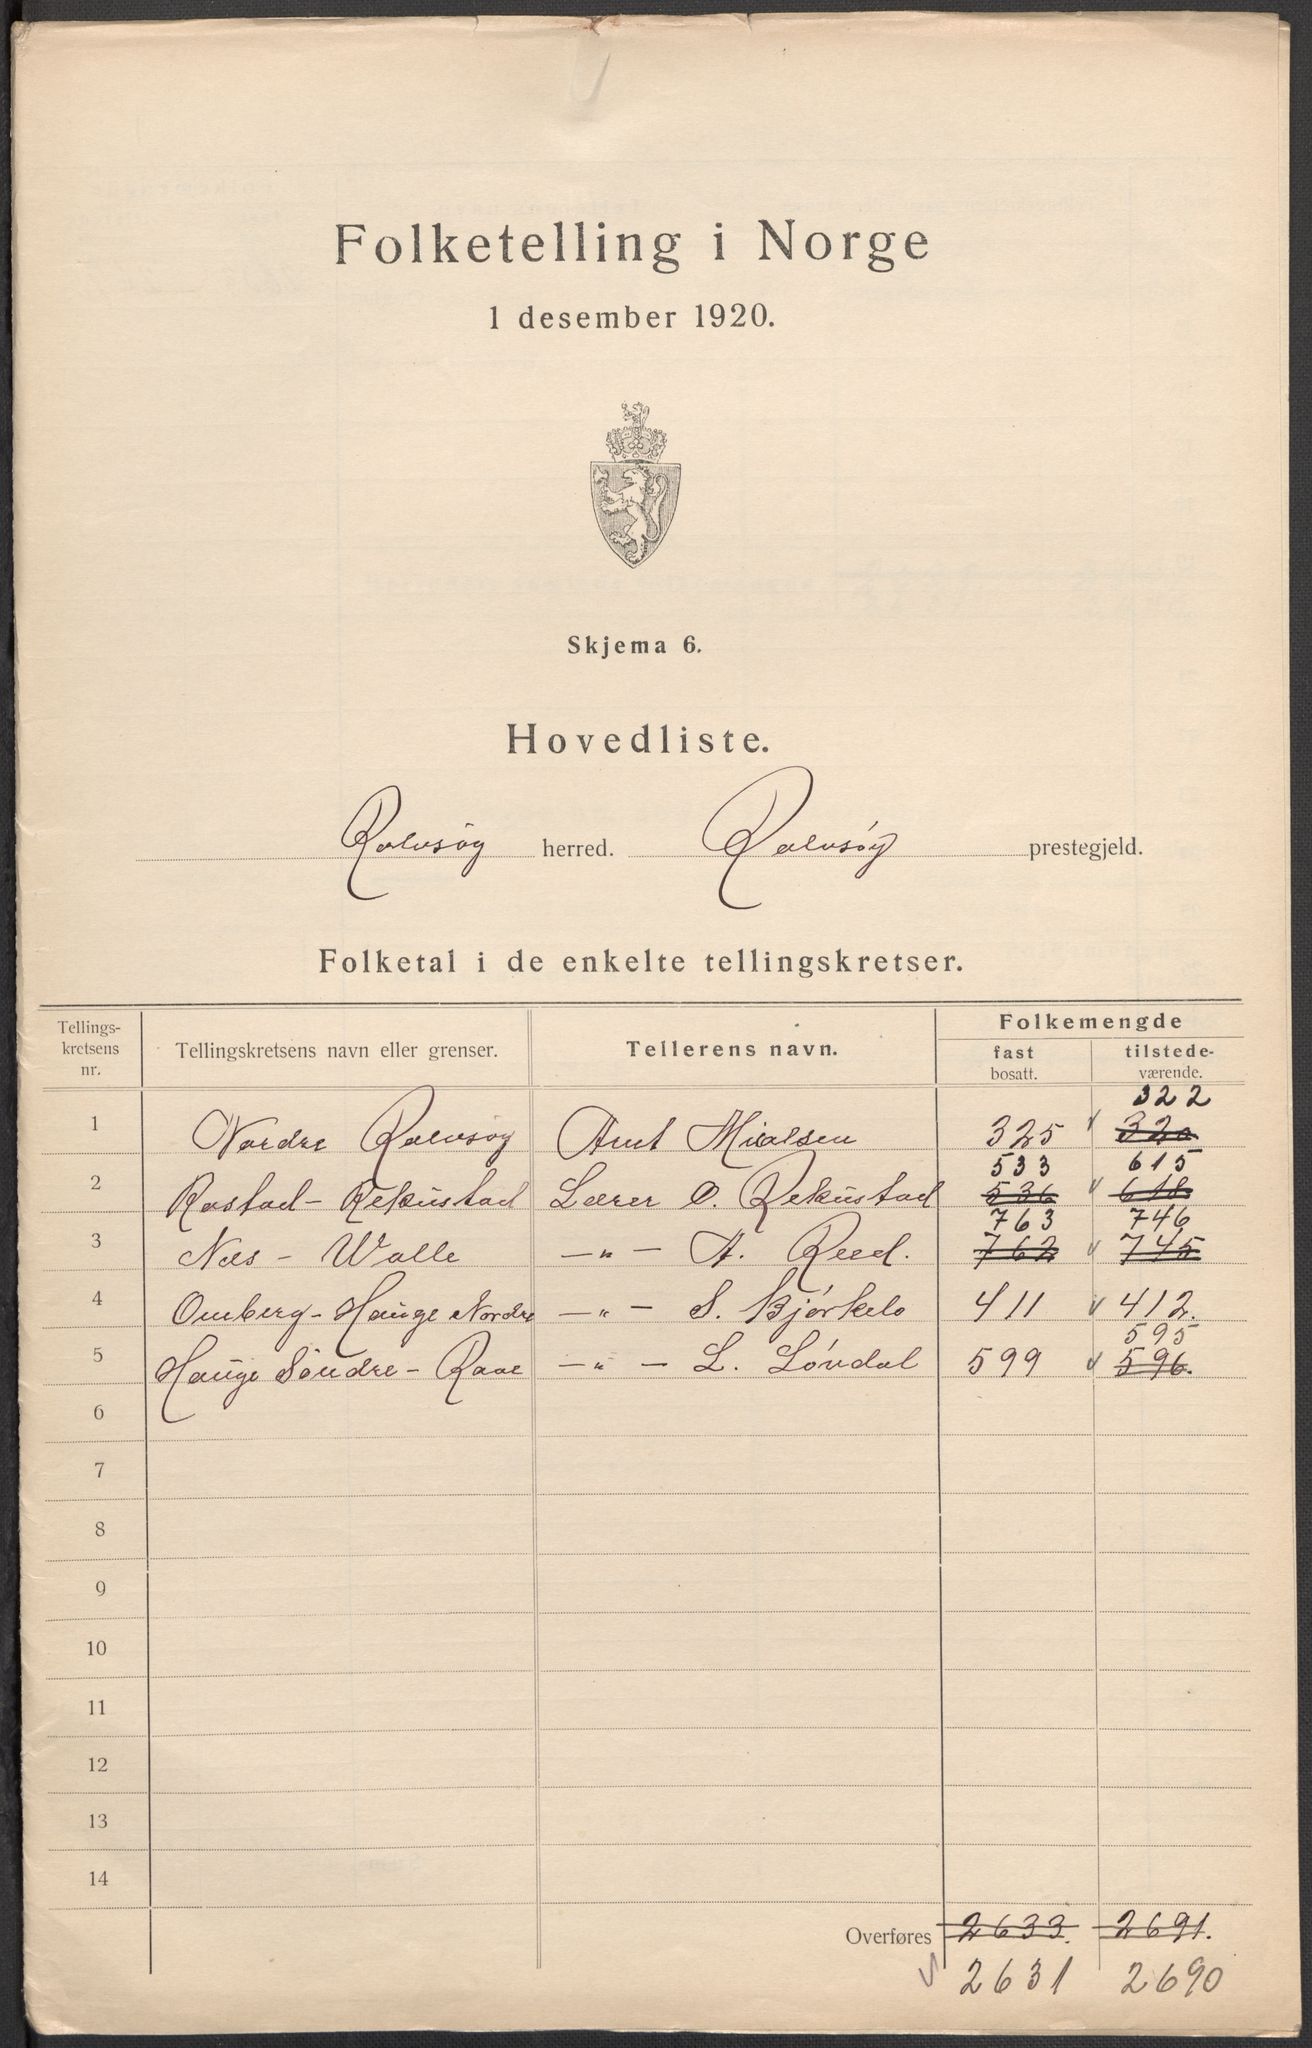 Folketelling i Norge
1 desember 1920.
Skjema 6.
Hovedliste.
Rolvsøy herred. Rolvsøy prestegjeld.
Folketal i de enkelte tellingskretser.
Tellings-kretsens nr. Tellingskretsens navn eller grenser. Tellerens navn. Folkemengde
fast bosatt. tilstede-værende.
322
1 Nordre Rolvsøy Arnt Nicolsen 325 320
533 615
2 Rostad - Rekustad Lærer O. Rekustad 536 618
763 746
3 Nes - Walle —„— A. Reed. 762 745
4 Omberg - Hauge Nordre —„— S. Bjørkelo 411 412.
595
5 Hauge Søndre - Raae —„— L. Løvdal 599 596.
6
7
8
9
10
11
12
13
14
Overføres 2633. 2691.
2631 2690